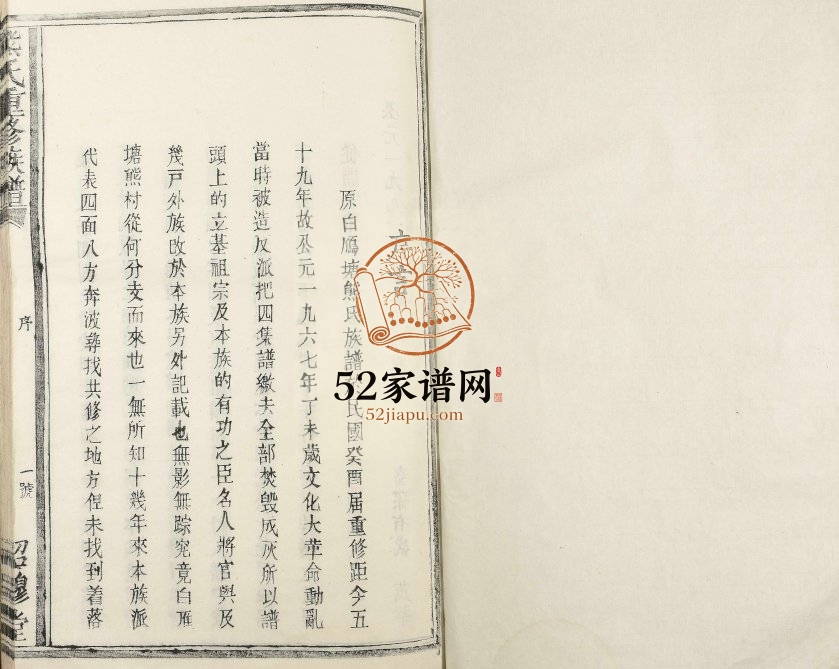 熊氏重修族譜
序
一號
昭穆堂
原白鴈塘熊氏族譜民國癸酉届重修距今五
十九年故公元一九六七年丁未歲文化大革命動亂
當時被造反派把四集譜繳去全部焚毀成灰所以譜
頭上的立基祖宗及本族的有功之臣名人將官與及
幾戶外族改於本族另外記載也無影無踪究竟白雁
塘熊村從何分支而來也一無所知十幾年來本族派
代表四面八方奔波尋找共修之地方但未找到着落
52家谱网
52jiapu.com